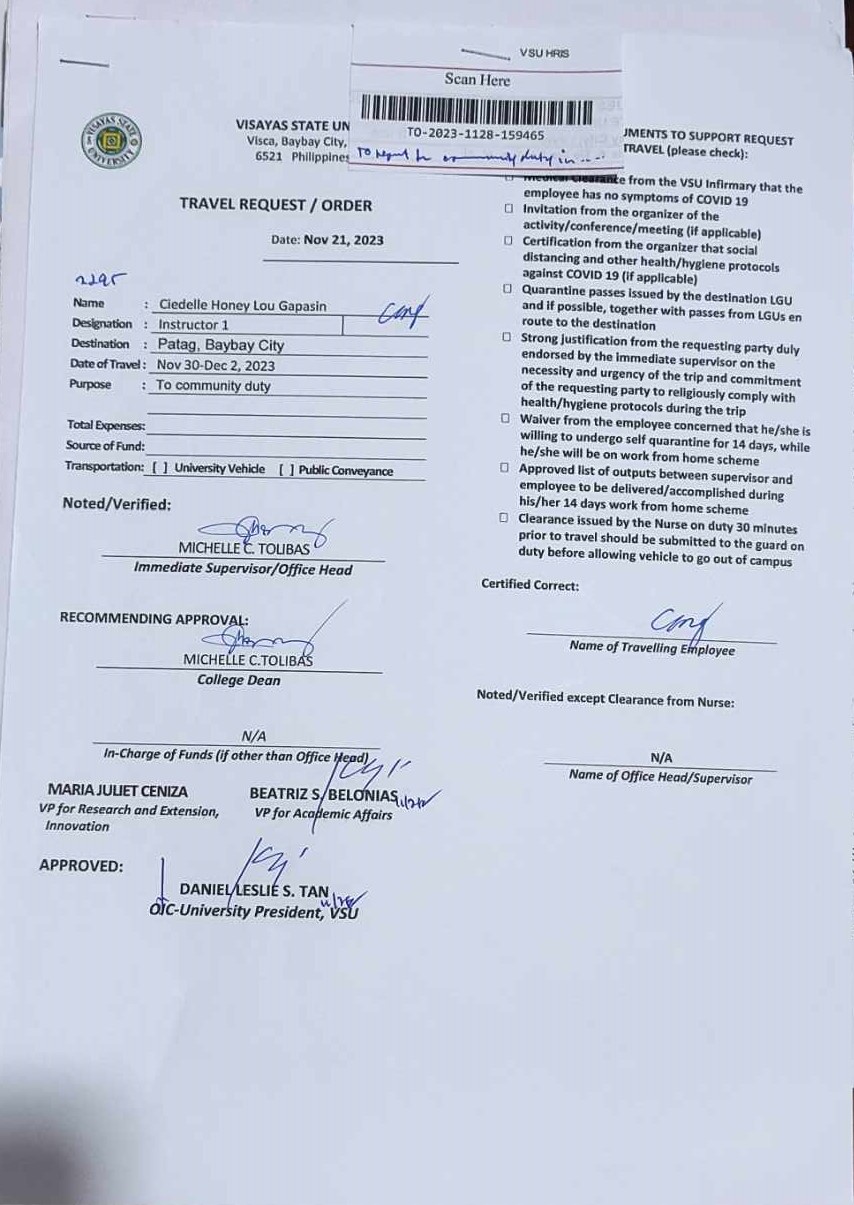 VSU HRIS
Scan Here
TO-2023-1128-159465
To report for community duty in ....
VISAYAS STATE UNIVERSITY
VISAYAS STATE UN
Visca, Baybay City,
6521 Philippines
TRAVEL REQUEST / ORDER
Date: Nov 21, 2023
2295
Name : Ciedelle Honey Lou Gapasin
Designation : Instructor 1
Destination : Patag, Baybay City
Date of Travel : Nov 30-Dec 2, 2023
Purpose : To community duty
Total Expenses:
Source of Fund:
Transportation: [ ] University Vehicle [ ] Public Conveyance
Noted/Verified:
MICHELLE C. TOLIBAS
Immediate Supervisor/Office Head
RECOMMENDING APPROVAL:
MICHELLE C.TOLIBAS
College Dean
N/A
In-Charge of Funds (if other than Office Head)
MARIA JULIET CENIZA
VP for Research and Extension,
Innovation
BEATRIZ S. BELONIAS
VP for Academic Affairs
APPROVED:
DANIEL LESLIE S. TAN
OIC-University President, VSU
UMENTS TO SUPPORT REQUEST
TRAVEL (please check):
Medical Clearance from the VSU Infirmary that the
employee has no symptoms of COVID 19
Invitation from the organizer of the
activity/conference/meeting (if applicable)
Certification from the organizer that social
distancing and other health/hygiene protocols
against COVID 19 (if applicable)
Quarantine passes issued by the destination LGU
and if possible, together with passes from LGUs en
route to the destination
Strong justification from the requesting party duly
endorsed by the immediate supervisor on the
necessity and urgency of the trip and commitment
of the requesting party to religiously comply with
health/hygiene protocols during the trip
Waiver from the employee concerned that he/she is
willing to undergo self quarantine for 14 days, while
he/she will be on work from home scheme
Approved list of outputs between supervisor and
employee to be delivered/accomplished during
his/her 14 days work from home scheme
Clearance issued by the Nurse on duty 30 minutes
prior to travel should be submitted to the guard on
duty before allowing vehicle to go out of campus
Certified Correct:
Name of Travelling Employee
Noted/Verified except Clearance from Nurse:
N/A
Name of Office Head/Supervisor